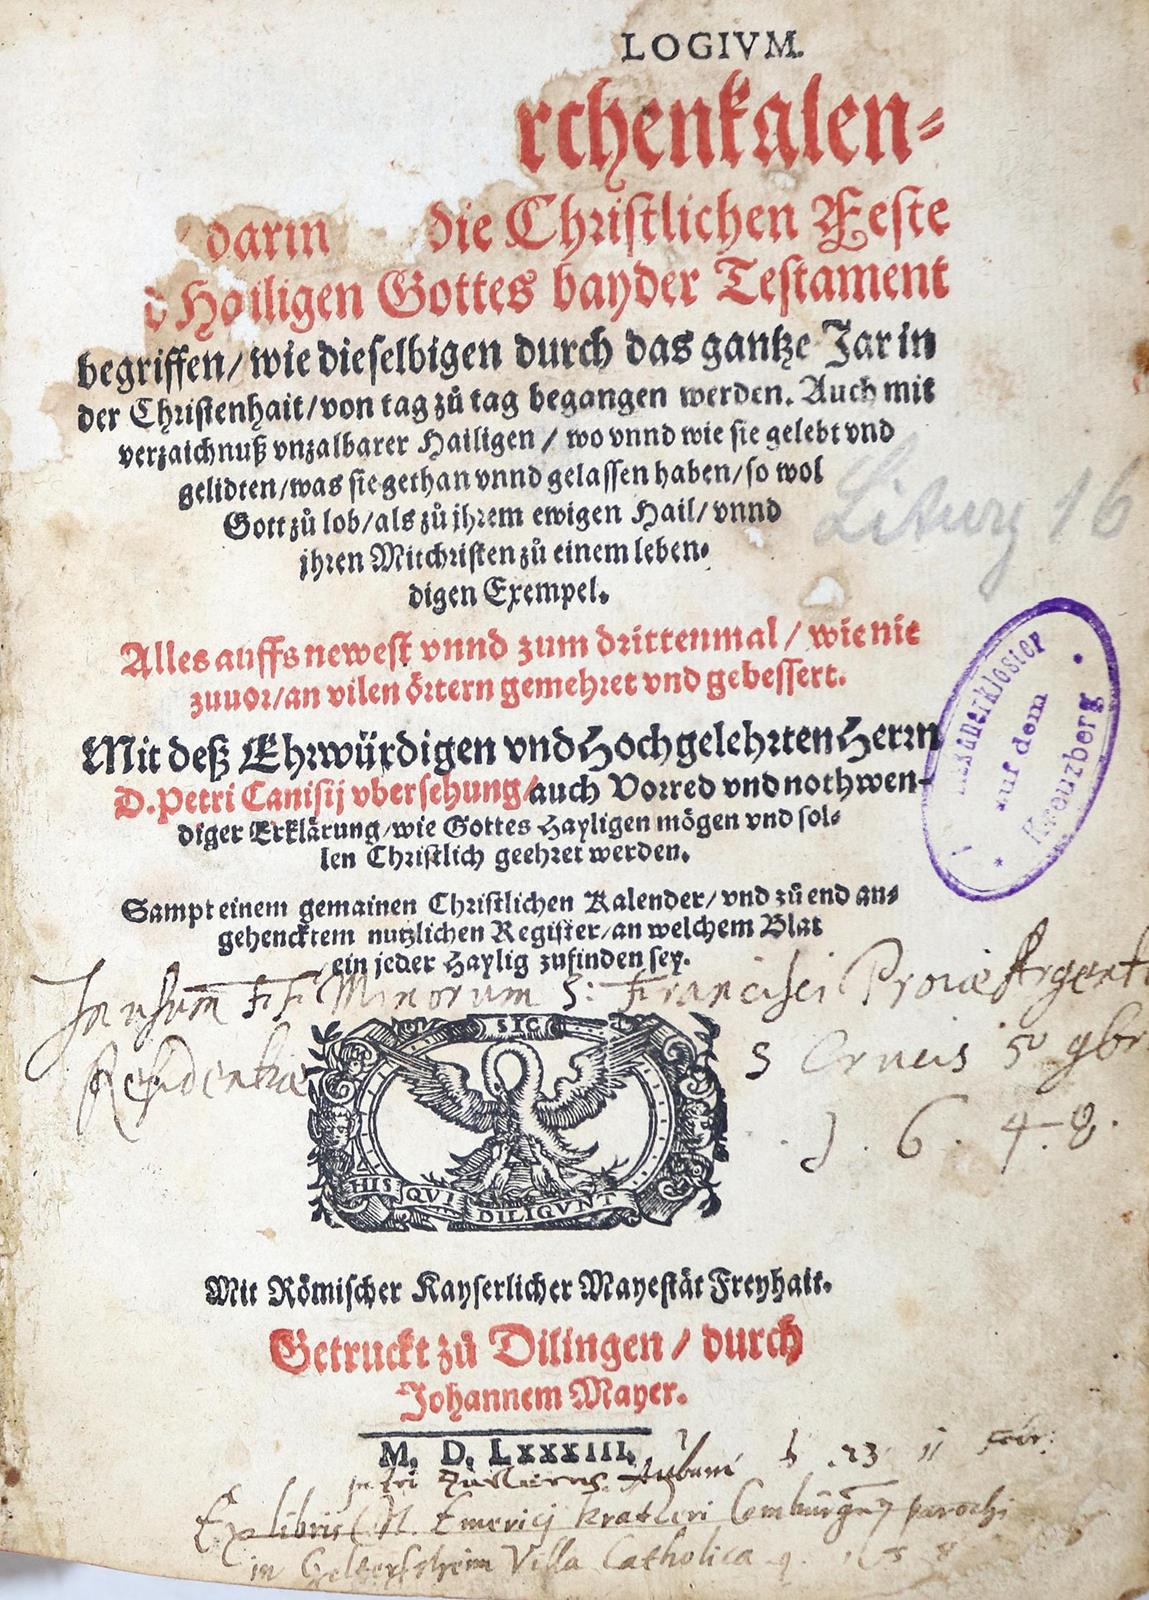 LOGIVM.
rchenkalen-
darin die Christlichen Feste
d Hailigen Gottes bayder Testament
begriffen/ wie dieselbigen durch das gantze Jar in
der Christenhait/ von tag zů tag begangen werden. Auch mit
verzaichnuß vnzalbarer Hailigen / wo vnnd wie sie gelebt vnd
gelidten/ was sie gethan vnnd gelassen haben/ so wol
Gott zů lob/ als zů jhrem ewigen Hail/ vnnd
jhren Mitchristen zů einem leben-
digen Exempel.
Liturg 16
Alles auffs newest vnnd zum drittenmal / wie nie
zuuor/ an vilen örtern gemehret vnd gebessert.
Mit deß Ehrwürdigen vnd Hochgelehrten Herrn
D. Petri Canisij vbersehung/ auch Vorred vnd nothwen-
diger Erklärung/ wie Gottes Hayligen mögen vnd sol-
len Christlich geehret werden.
auf dem
Kreuzberg
Sampt einem gemainen Christlichen Kalender/ vnd zů end an-
gehencktem nutzlichen Register/ an welchem Blat
ein jeder Haylig zufinden sey.
In usum F. F. Minorum S: Francisci Prouiae Argent
Residentiae S Crucis 5º 9br
1. 6. 4. 8.
SIC
HIS QVI DILIGVNT
Mit Römischer Kayserlicher Mayestät Freyhait.
Getruckt zů Dilingen / durch
Johannem Mayer.
M. D. LXXXIII.
23 11 Febr:
Ex libris M. Emerici Kratzeri parochi
in Geltersheim Villa Catholica